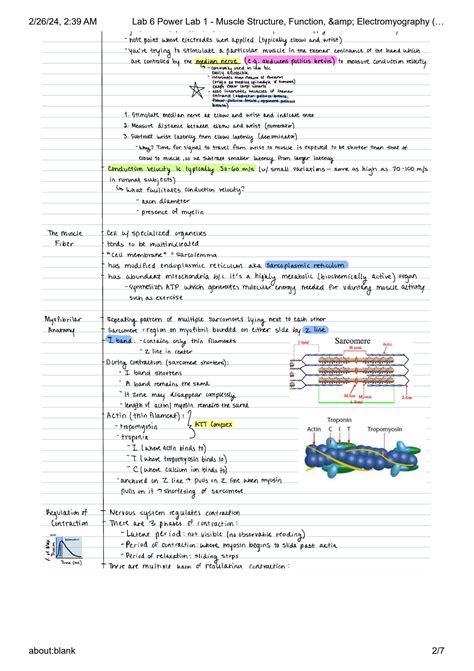 2/26/24, 2:39 AM
Lab 6 Power Lab 1 - Muscle Structure, Function, &amp; Electromyography (…
- note point where electrodes were applied (typically elbow and wrist)
- you're trying to stimulate a particular muscle in the thenar eminance of the hand which
are controlled by the median nerve (e.g. abducens pollicis brevis) to measure conduction velocity
1. Stimulate median nerve at elbow and wrist and indicate
2. Measure distance between elbow and wrist (numerator)
3. Subtract wrist latency from elbow latency (denominator)
- Why? Time for signal to travel from wrist to muscle is expected to be shorter than that of
elbow to muscle, so we subtract smaller latency from larger latency
- Conduction velocity is typically 50-60 m/s (w/ small variations - some as high as 70-100 m/s
in normal subjects)
↳ What facilitates conduction velocity?
- axon diameter
- presence of myelin
The muscle
Fiber
- Cell w/ specialized organelles
- tends to be multinucleated
- "cell membrane" = Sarcolemma
- has modified endoplasmic reticulum aka Sarcoplasmic reticulum
- has abundant mitochondria b/c it's a highly metabolic (biochemically active) organ
- synthesizes ATP which generates molecular energy needed for voluntary muscle activity
such as exercise
Myofibrilar
Anatomy
- Repeating pattern of multiple sarcomeres lying next to each other
- Sarcomere: region on myofibril bounded on either side by Z line
- I band: - contains only thin filaments
- Z line in center
- During contraction (sarcomere shortens):
- I band shortens
- A band remains the same
- H zone may disappear completely
- length of actin/myosin remains the same
- Actin (thin filament):
- tropomyosin
- troponin
ATT Complex
- I (where Actin binds to)
- T (where tropomyosin binds to)
- C (where calcium ion binds to)
- anchored on Z line → pulls on Z line when myosin
pulls on it → shortening of sarcomere
Sarcomere
Troponin
Actin C I T Tropomyosin
Regulation of
Contraction
- Nervous system regulates contraction
- There are 3 phases of contraction:
- Latent period: not visible (no observable reading)
- Period of contraction: where myosin begins to slide past actin
- Period of relaxation: sliding stops
Time (ms)
about:blank
2/7